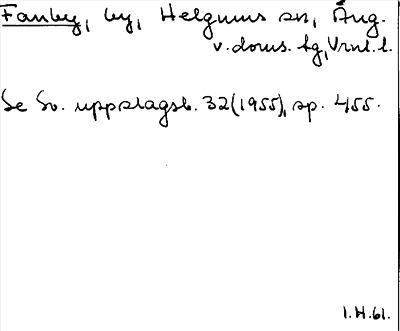 Fanby, by, Helgums sn, Ång.
v. doms. tg, Vrnl. l.
Se Sv. uppslagsb. 32 (1955), sp. 455.
I.H.61.